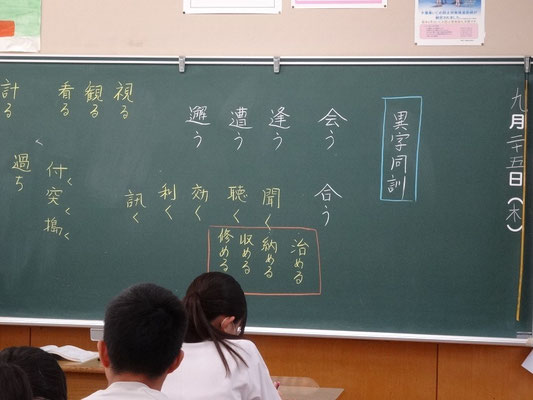 九月二十五日（木）
異字同訓
会う
合う
逢う
遭う
邂う
聞く
聴く
効く
利く
訊く
治める
納める
収める
修める
視る
観る
看る
計る
付く
突く
搗く
過ち